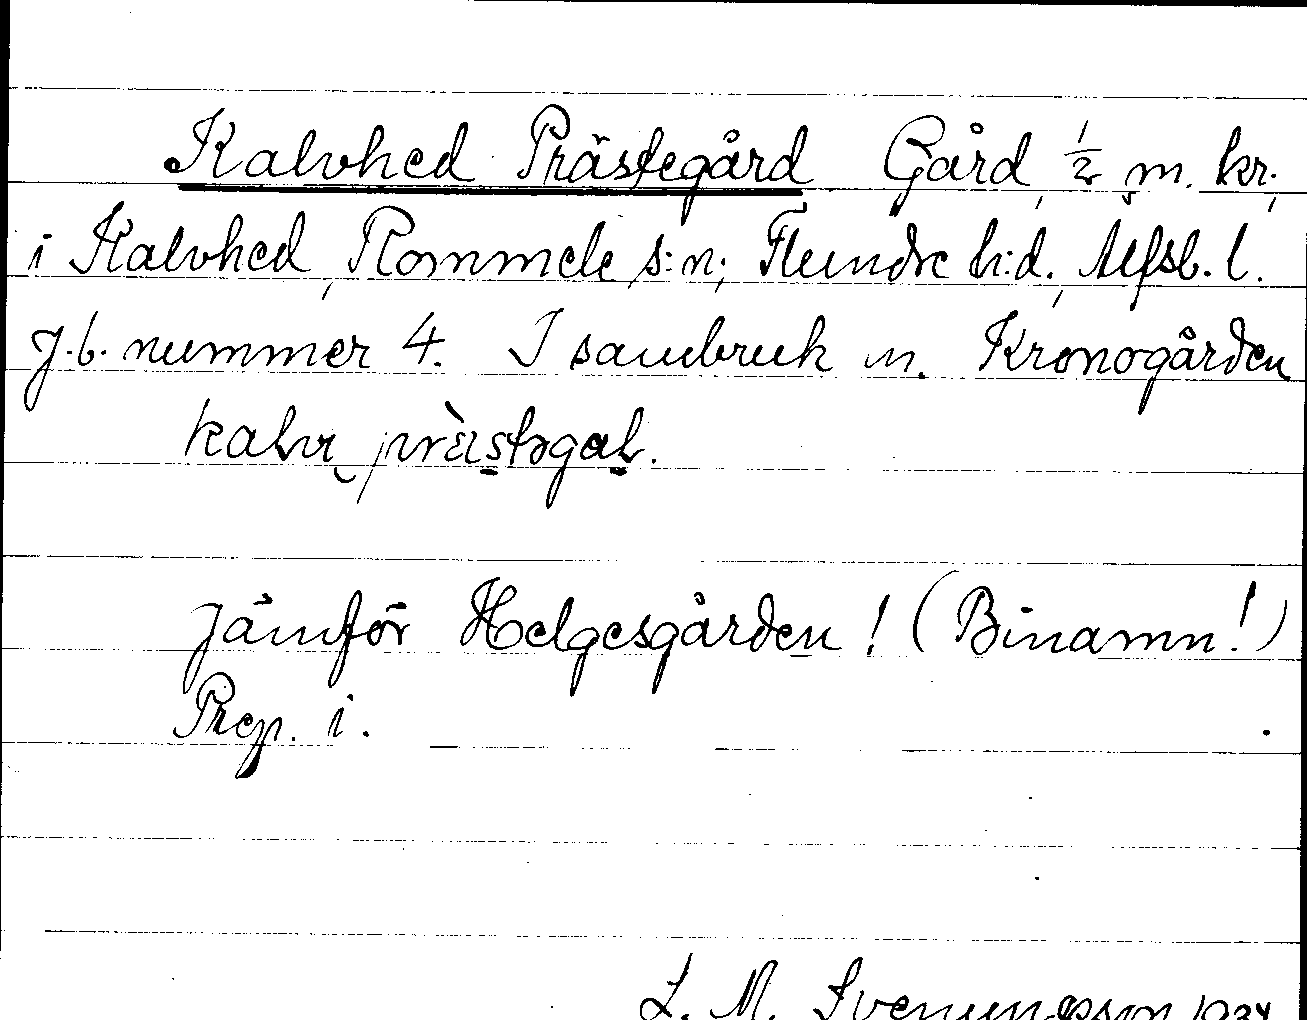 Kalvhed Prästegård Gård, 1/2 m. kr.,
i Kalvhed, Rommele s:n, Flundre h:d, Älfsb. l.
J.b. nummer 4. I sambruk m. Kronogården
kalvı präs̱təgaḻ.
Jämför Helgesgården! (Binamn!)
Prep. i.
L. M. Svenungsson 1934